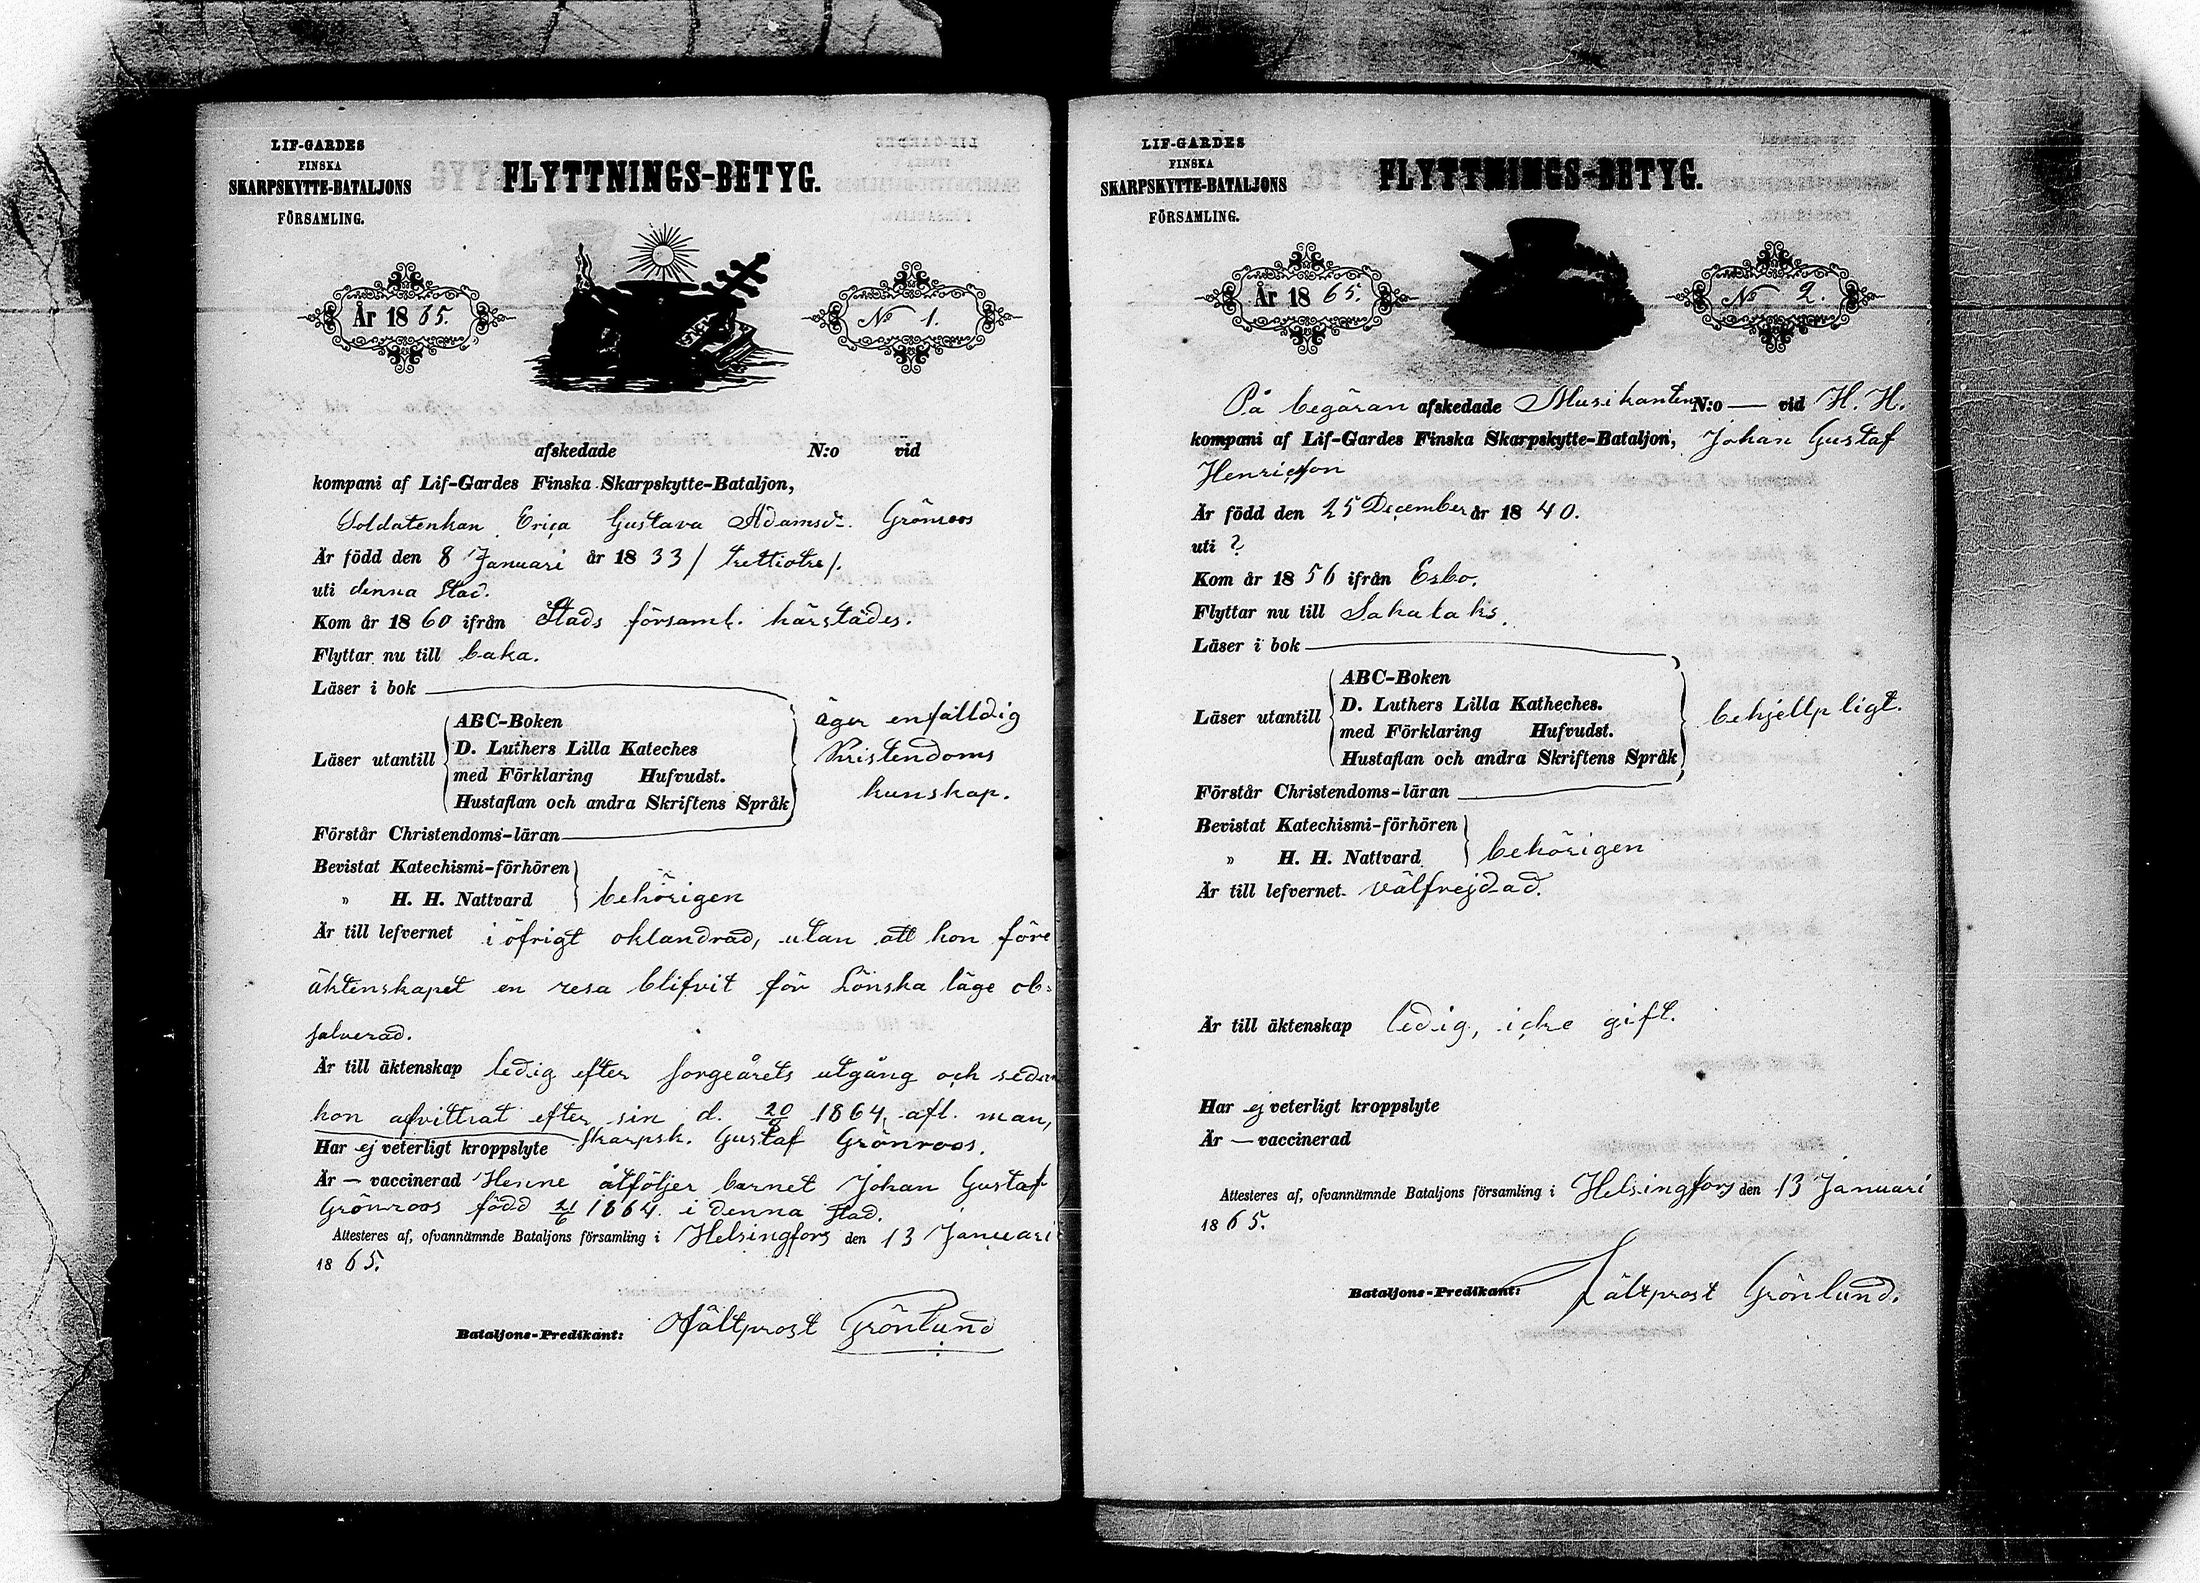 LIF-GARDES
FINSKA
SKARPSKYTTE-BATALJONS
FÖRSAMLING.
FLYTTNINGS-BETYG.
År 1865.
No 1.
afskedade N:o vid
kompani af Lif-Gardes Finska Skarpskytte-Bataljon,
Soldatenkan Erica Gustava Adamsdr. Grönroos
Är född den 8 Januari år 1833 / trettiotre /.
uti denna stad.
Kom år 1860 ifrån Stads församl. härstädes.
Flyttar nu till baka.
Läser i bok
Läser utantill
ABC-Boken
D. Luthers Lilla Kateches
med Förklaring Hufvudst.
Hustaflan och andra Skriftens Språk
äger enfalldig
Kristendoms
kunskap.
Förstår Christendoms-läran
Bevistat Katechismi-förhören
" H. H. Nattvard
behörigen
Är till lefvernet i öfrigt oklandrad, utan att hon före
äktenskapet en resa blifvit för Lönska läge ob-
solverad.
Är till äktenskap ledig efter sorgeårets utgång och sedan
hon afvittrat efter sin d. 20/8 1864 afl. man,
Skarpsk. Gustaf Grönroos.
Har ej veterligt kroppslyte
Är — vaccinerad Henne åtföljer barnet Johan Gustaf
Grönroos född 21/6 1864 i denna stad.
Attesteres af, ofvannämnde Bataljons församling i Helsingfors den 13 Januari
1865.
Bataljons-Predikant: Fältprost Grönlund
LIF-GARDES
FINSKA
SKARPSKYTTE-BATALJONS
FÖRSAMLING.
FLYTTNINGS-BETYG.
År 1865.
No 2.
På begäran afskedade Musikanten N:o — vid H. H.
kompani af Lif-Gardes Finska Skarpskytte-Bataljon, Johan Gustaf
Henricson
Är född den 25 December år 1840.
uti ?
Kom år 1856 ifrån Esbo.
Flyttar nu till Sakalaks.
Läser i bok
Läser utantill
ABC-Boken
D. Luthers Lilla Katheches.
med Förklaring Hufvudst.
Hustaflan och andra Skriftens Språk
behjellpligt.
Förstår Christendoms-läran
Bevistat Katechismi-förhören
" H. H. Nattvard
behörigen
Är till lefvernet välfrejdad.
Är till äktenskap ledig, icke gift.
Har ej veterligt kroppslyte
Är — vaccinerad
Attesteres af, ofvannämnde Bataljons församling i Helsingfors den 13 Januari
1865.
Bataljons-Predikant: Fältprost Grönlund.